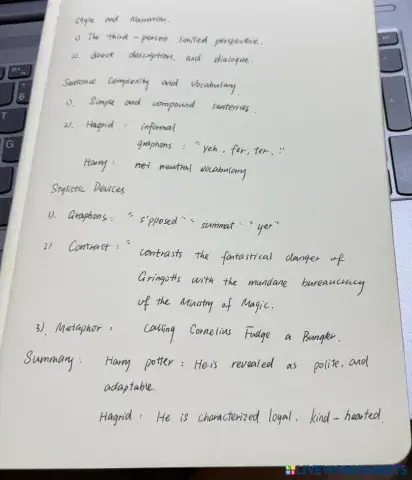 Style and Narration.
1) The third-person limited perspective.
2) direct description, and dialogue.
Sentence Complexity and Vocabulary.
1). Simple and compound sentences.
2). Hagrid : informal
graphons : "yeh, fer, ter, !"
Harry : neutral vocabulary
Stylistic Devices
1). Graphons : "s'pposed" "summat" "yer"
2) Contrast : "contrasts the fantastical danger of
Gringotts with the mundane bureaucracy
of the Ministry of Magic.
3). Metaphor : Calling Cornelius Fudge a Bungler.
Summary : Harry potter : He is revealed as polite, and
adaptable.
Hagrid : He is characterized loyal, kind-hearted.
LIVEWORKSHEETS